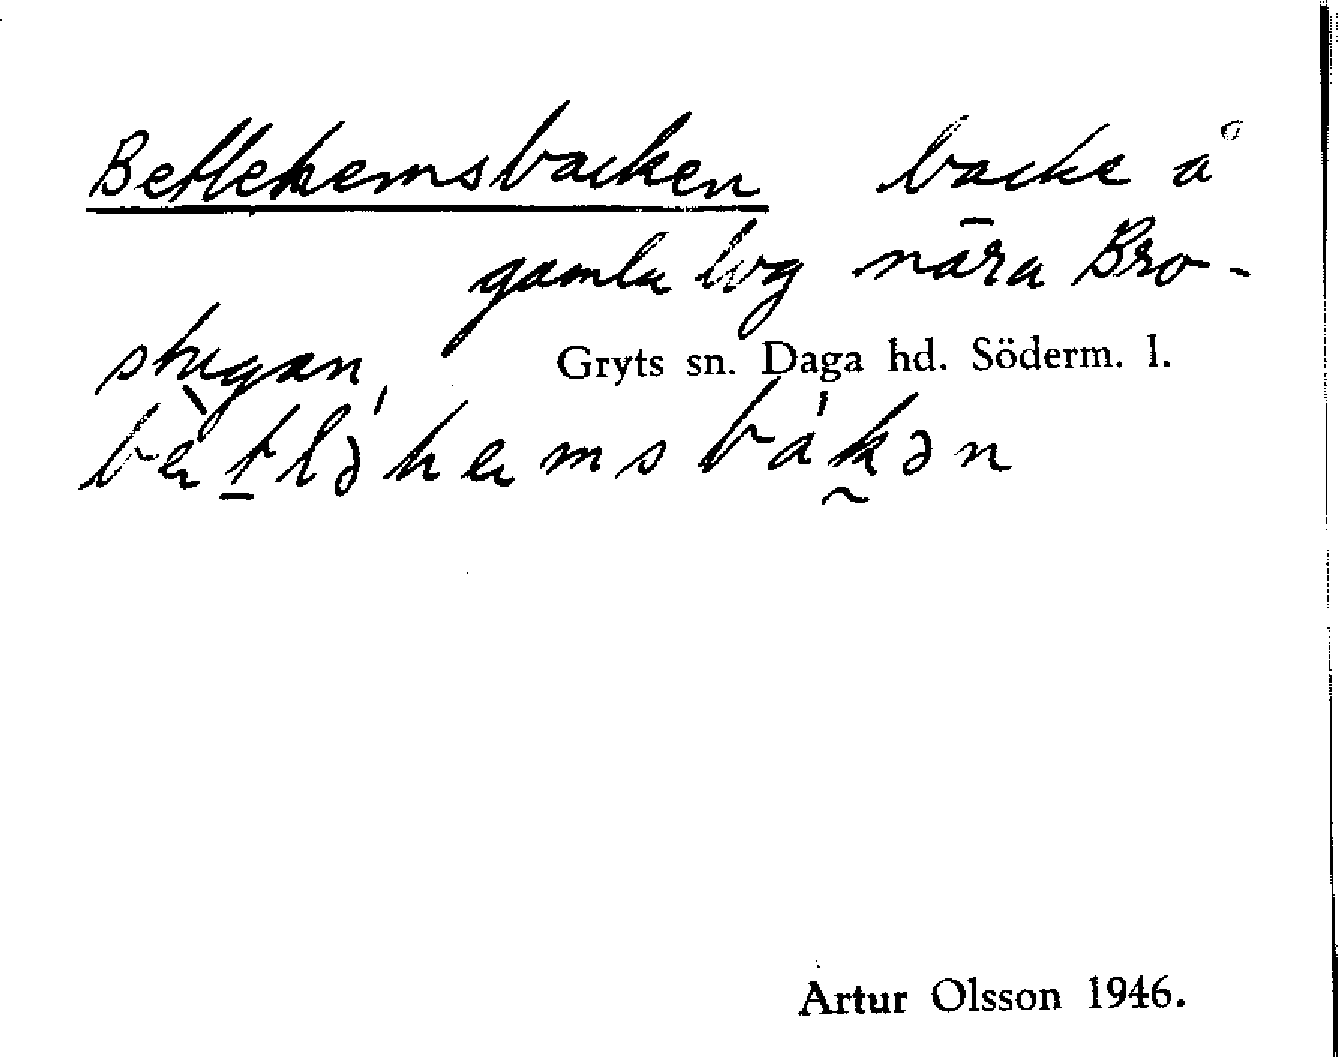 Betlehemsbacken backe å
gamla väg nära Bro-
stugan,
Gryts sn. Daga hd. Söderm. l.
bètləhemsbákən
Artur Olsson 1946.